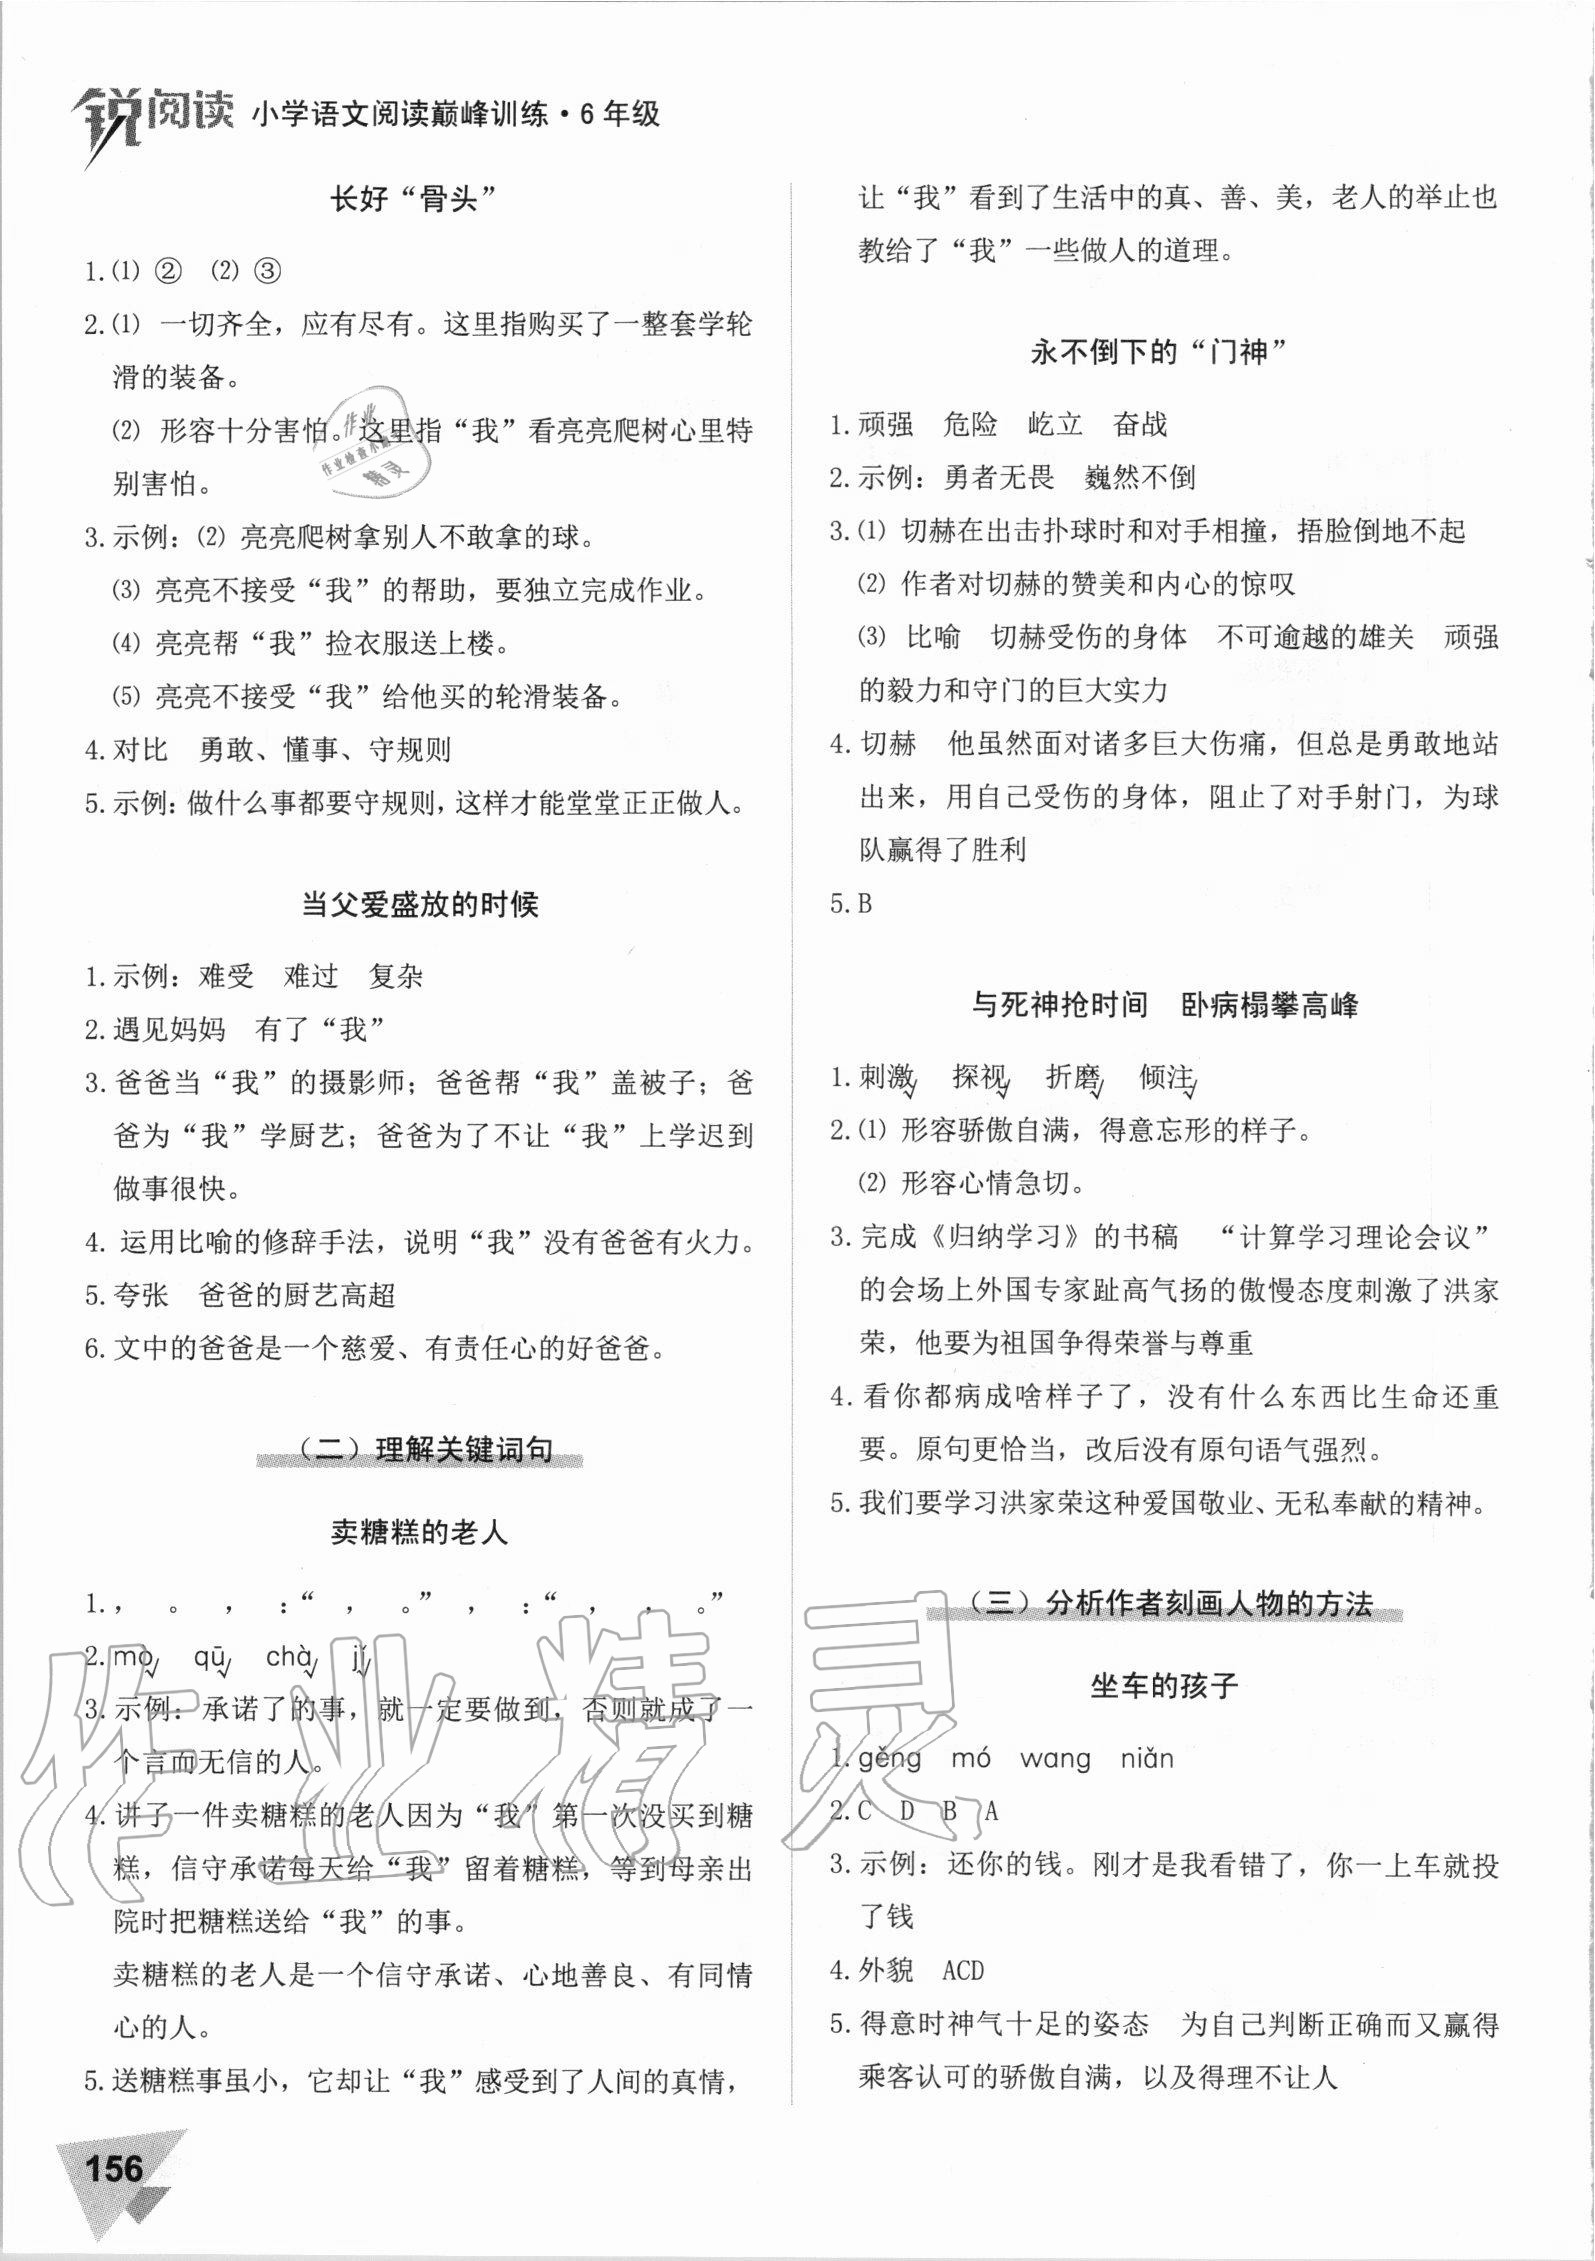 锐阅读 小学语文阅读巅峰训练·6年级
长好“骨头”
1.⑴ ② ⑵ ③
2.⑴ 一切齐全，应有尽有。这里指购买了一整套学轮
滑的装备。
⑵ 形容十分害怕。这里指“我”看亮亮爬树心里特
别害怕。
3.示例：⑵ 亮亮爬树拿别人不敢拿的球。
⑶ 亮亮不接受“我”的帮助，要独立完成作业。
⑷ 亮亮帮“我”捡衣服送上楼。
⑸ 亮亮不接受“我”给他买的轮滑装备。
4.对比 勇敢、懂事、守规则
5.示例：做什么事都要守规则，这样才能堂堂正正做人。
当父爱盛放的时候
1.示例：难受 难过 复杂
2.遇见妈妈 有了“我”
3.爸爸当“我”的摄影师；爸爸帮“我”盖被子；爸
爸为“我”学厨艺；爸爸为了不让“我”上学迟到
做事很快。
4. 运用比喻的修辞手法，说明“我”没有爸爸有火力。
5.夸张 爸爸的厨艺高超
6.文中的爸爸是一个慈爱、有责任心的好爸爸。
（二）理解关键词句
卖糖糕的老人
1.， 。 ， ：“ ， 。” ， ：“ ， ， 。”
2.mo√ qū√ chà√ jǐ√
3.示例：承诺了的事，就一定要做到，否则就成了一
个言而无信的人。
4.讲了一件卖糖糕的老人因为“我”第一次没买到糖
糕，信守承诺每天给“我”留着糖糕，等到母亲出
院时把糖糕送给“我”的事。
卖糖糕的老人是一个信守承诺、心地善良、有同情
心的人。
5.送糖糕事虽小，它却让“我”感受到了人间的真情，
156
让“我”看到了生活中的真、善、美，老人的举止也
教给了“我”一些做人的道理。
永不倒下的“门神”
1.顽强 危险 屹立 奋战
2.示例：勇者无畏 巍然不倒
3.⑴ 切赫在出击扑球时和对手相撞，捂脸倒地不起
⑵ 作者对切赫的赞美和内心的惊叹
⑶ 比喻 切赫受伤的身体 不可逾越的雄关 顽强
的毅力和守门的巨大实力
4.切赫 他虽然面对诸多巨大伤痛，但总是勇敢地站
出来，用自己受伤的身体，阻止了对手射门，为球
队赢得了胜利
5.B
与死神抢时间 卧病榻攀高峰
1.刺激√ 探视√ 折磨√ 倾注√
2.⑴ 形容骄傲自满，得意忘形的样子。
⑵ 形容心情急切。
3.完成《归纳学习》的书稿 “计算学习理论会议”
的会场上外国专家趾高气扬的傲慢态度刺激了洪家
荣，他要为祖国争得荣誉与尊重
4.看你都病成啥样子了，没有什么东西比生命还重
要。原句更恰当，改后没有原句语气强烈。
5.我们要学习洪家荣这种爱国敬业、无私奉献的精神。
（三）分析作者刻画人物的方法
坐车的孩子
1.gěng mó wang niǎn
2.C D B A
3.示例：还你的钱。刚才是我看错了，你一上车就投
了钱
4.外貌 ACD
5.得意时神气十足的姿态 为自己判断正确而又赢得
乘客认可的骄傲自满，以及得理不让人
作业
作业检查小助手
精灵
作业精灵